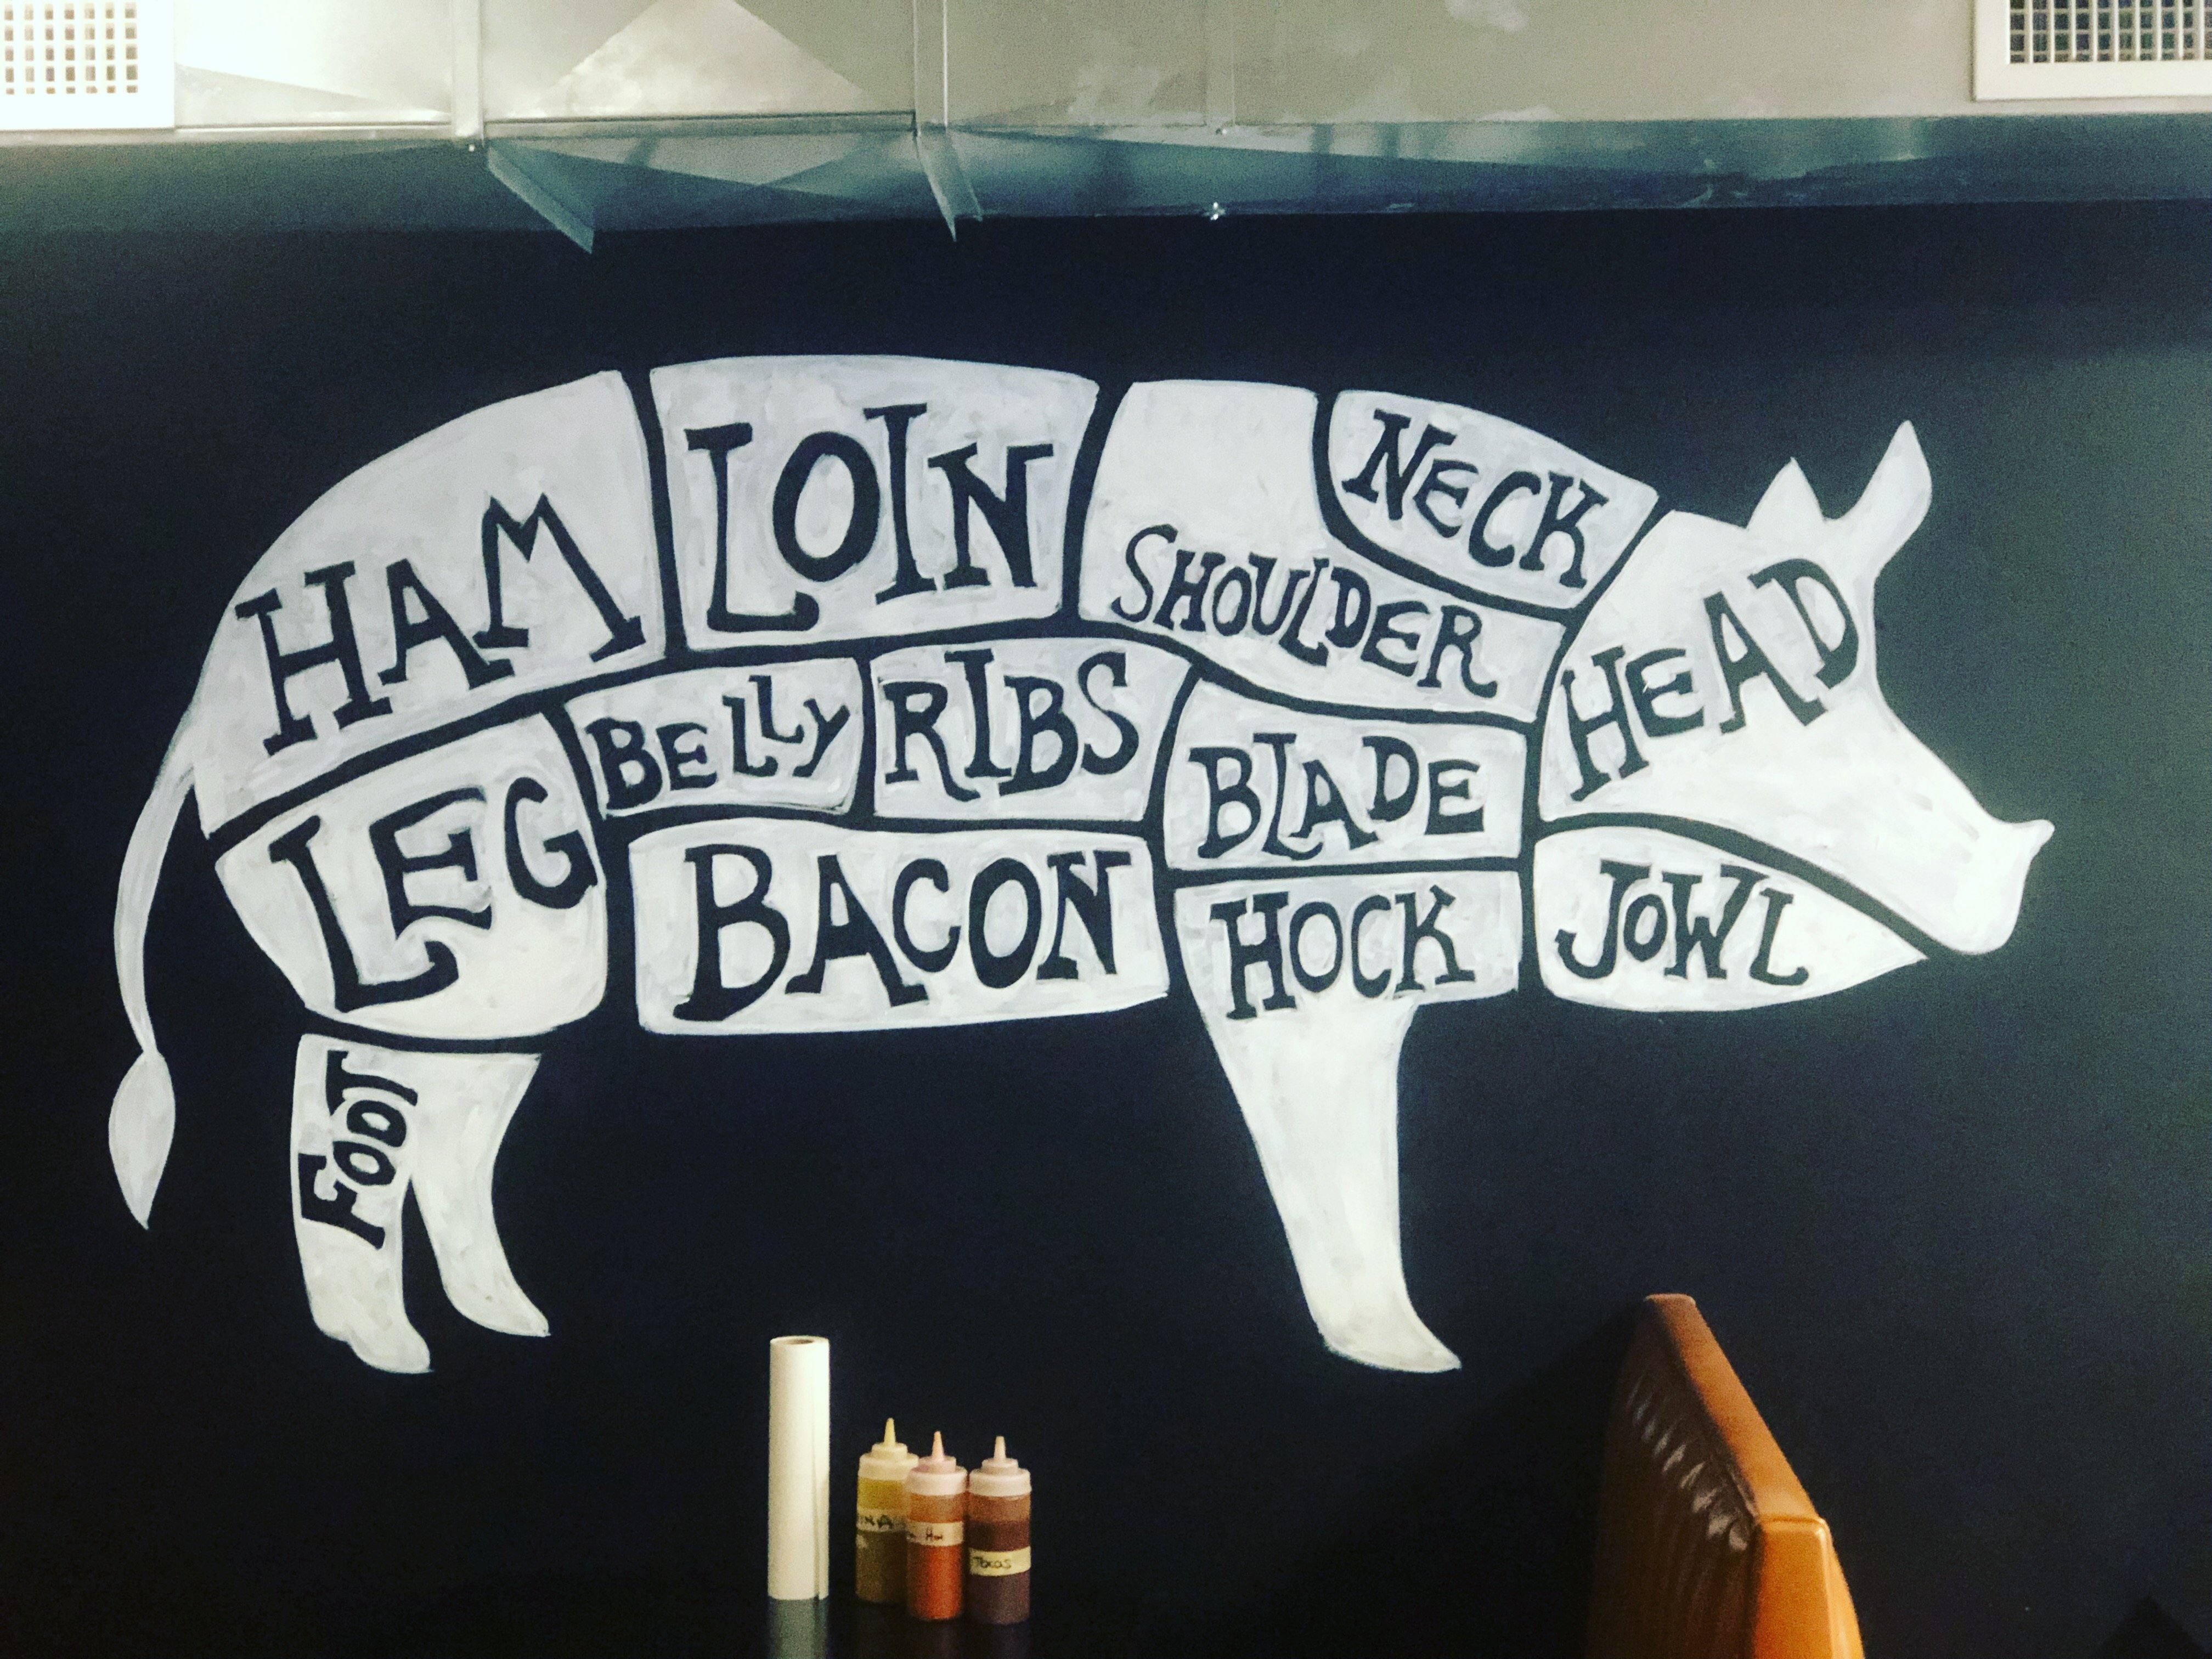 HAM
LOIN
SHOULDER
NECK
HEAD
LEG
BELLY
RIBS
BLADE
BACON
HOCK
JOWL
FOOT
Hot
Texas